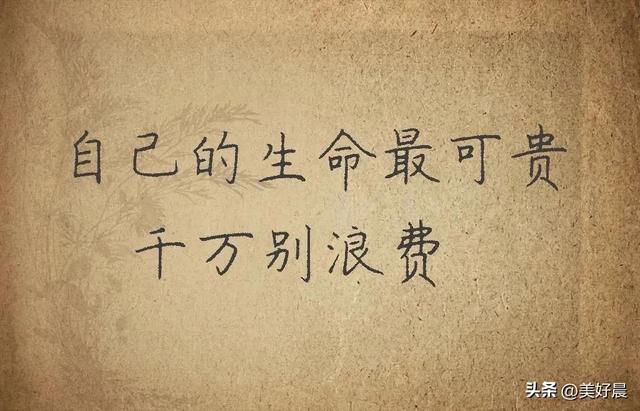 自己的生命最可贵
千万别浪费
头条@美好晨